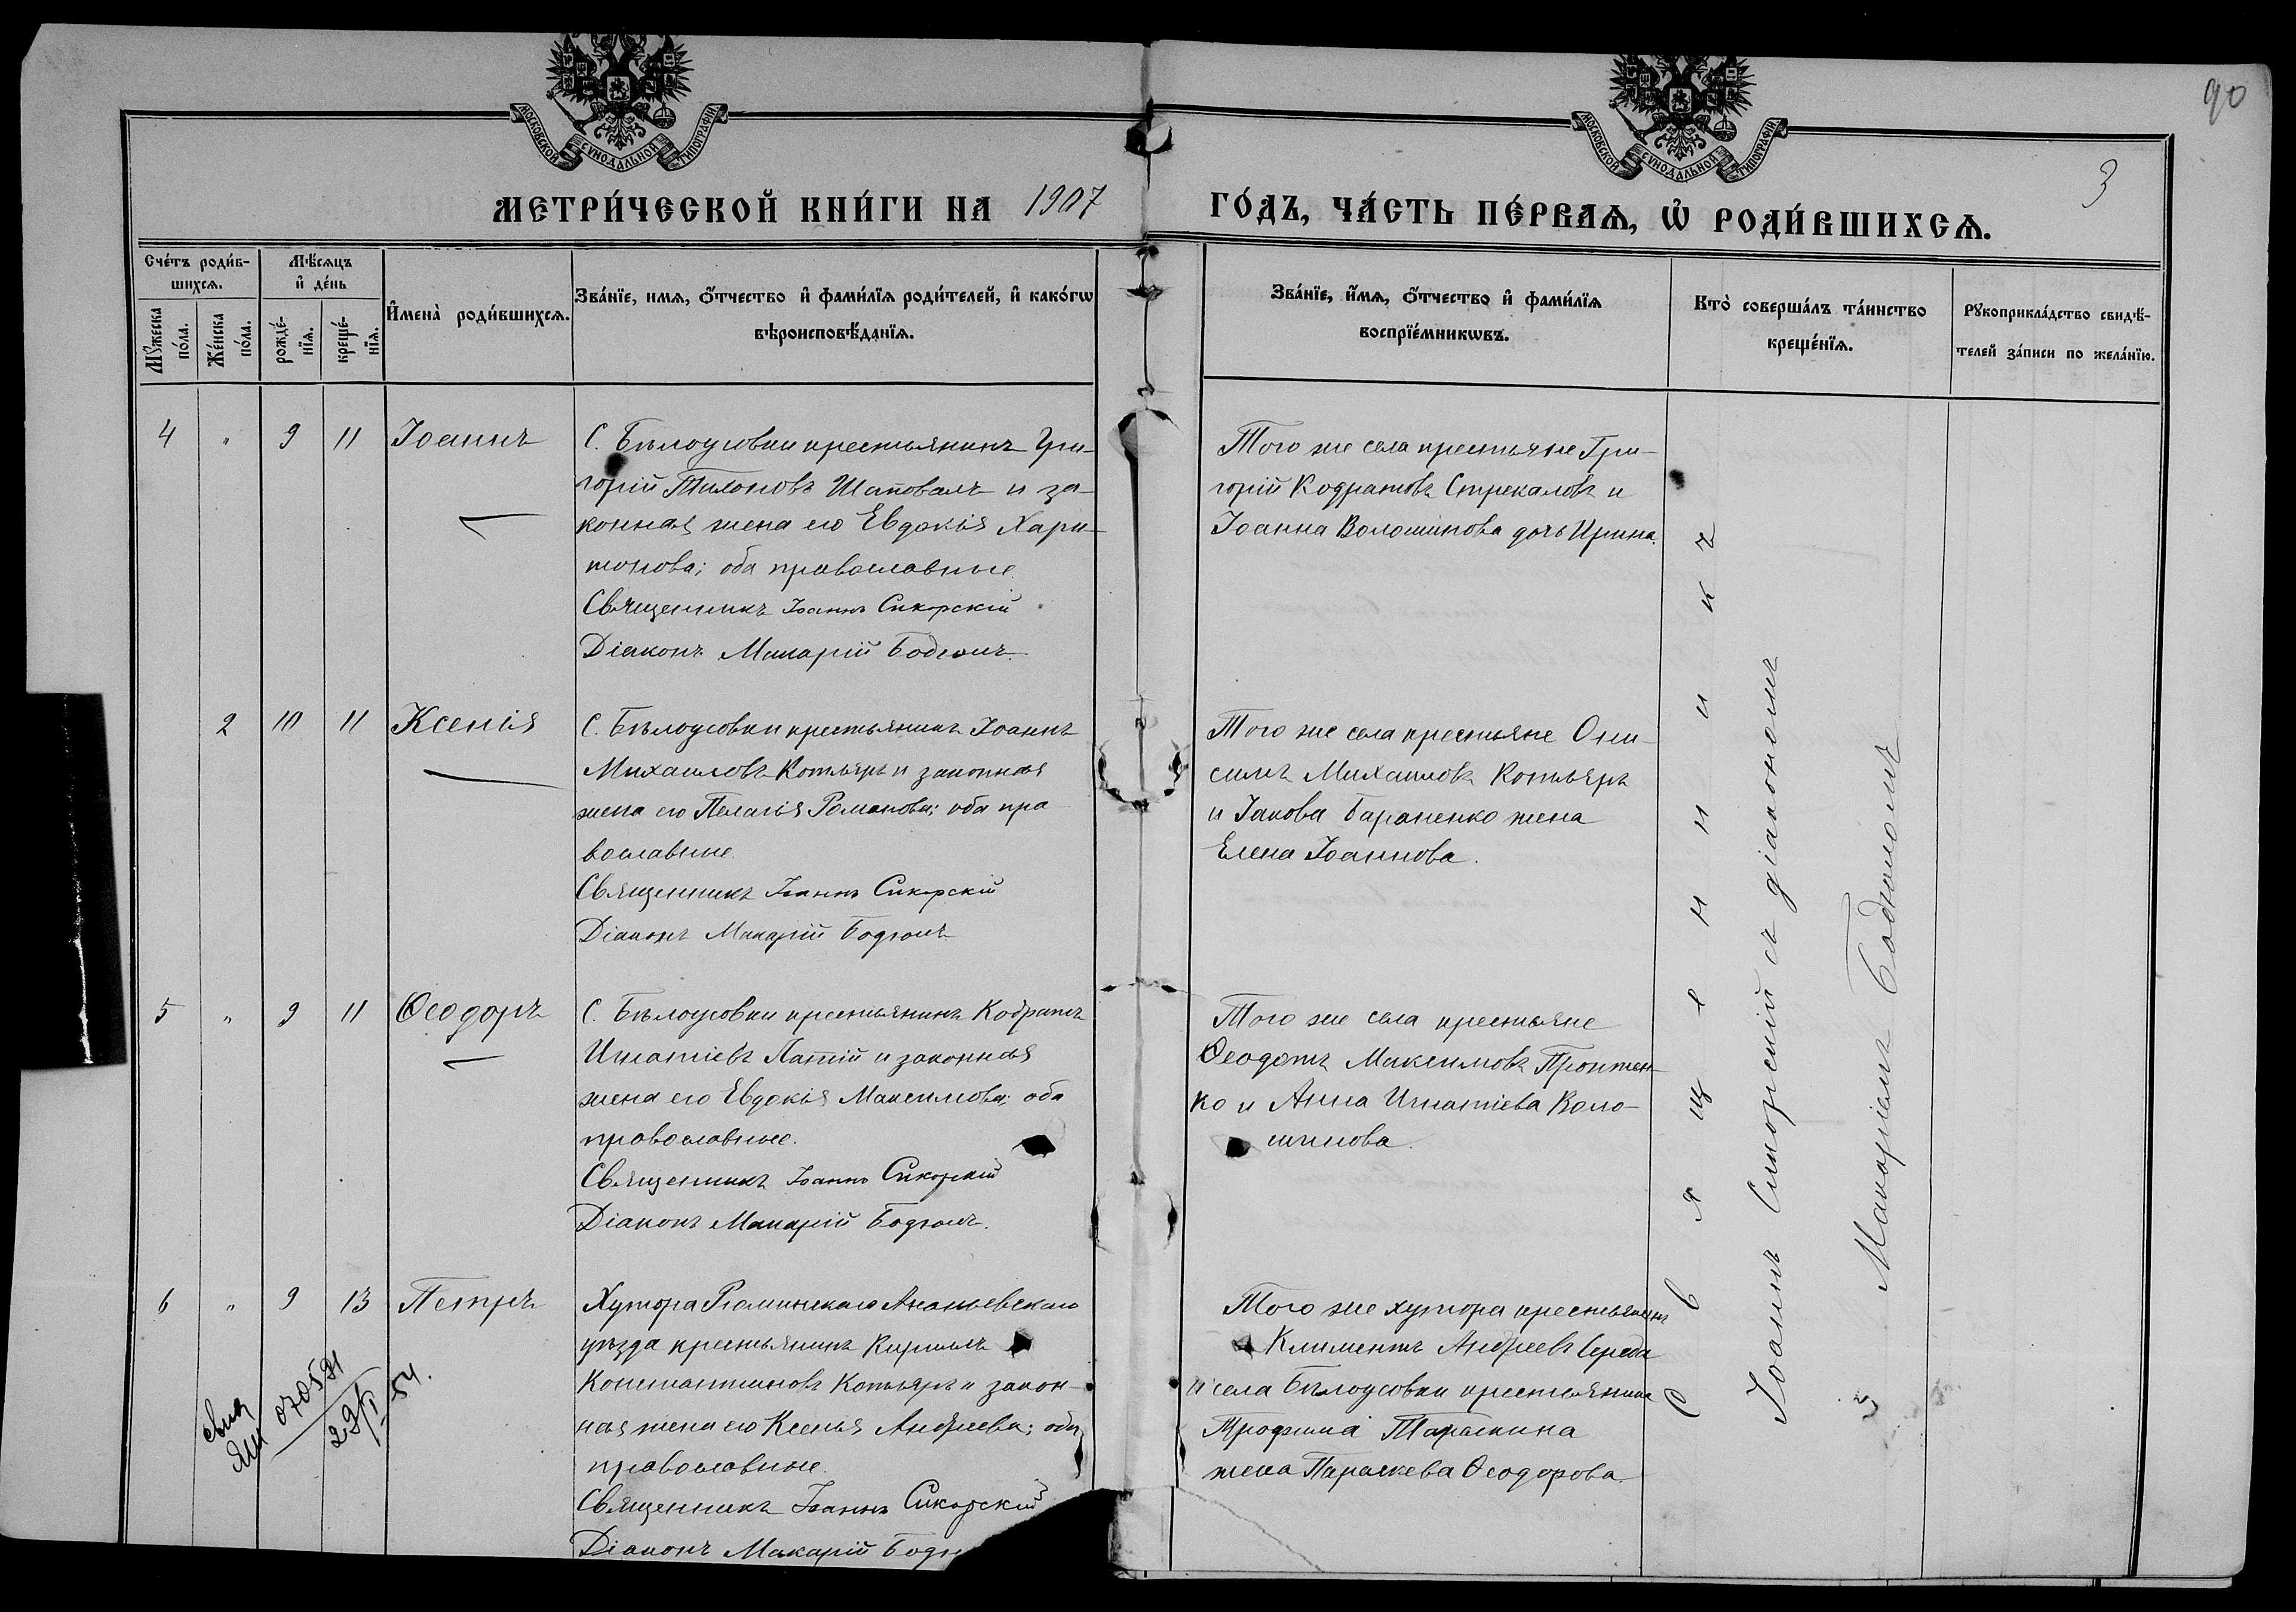 90
3
МОСКОВСКОЙ СѴНОДАЛЬНОЙ ТИПОГРАФІИ
МОСКОВСКОЙ СѴНОДАЛЬНОЙ ТИПОГРАФІИ
МЕТРИ́ЧЕСКОЙ КНИ́ГИ НА 1907 ГО́ДЪ, ЧА́СТЬ ПЕ́РВАѦ, Ѡ҆ РОДИ́ВШИХСѦ.
Сче́тъ роди́в-
шихсѧ.
Мꙋ́жеска по́ла.
Же́нска по́ла.
Мѣ́сѧцъ
и҆ де́нь
рожде́-
нїѧ.
креще́-
нїѧ.
И҆мена̀ роди́вшихсѧ.
Зва́нїе, имѧ, ѻ҆́тчество и҆ фами́лїѧ роди́телей, и҆ како́гѡ
вѣроисповѣ́данїѧ.
Зва́нїе, и҆́мѧ, ѻ҆́тчество и҆ фами́лїѧ
воспрїе́мникѡвъ.
Кто̀ соверша́лъ та́инство
креще́нїѧ.
Рꙋкоприкла́дство свидѣ́-
телей за́писи по жела́нїю.
4 " 9 11 Іоаннъ
С. Бѣлоусовки крестьянинъ Гри-
горій Тихоновъ Шаповалъ и за-
конная жена его Евдокія Хари-
тонова; оба православные.
Священникъ Іоаннъ Сикорскій
Діаконъ Макарій Бодгонъ
Того же села крестьяне Гри-
горій Кодратовъ Стрекаловъ и
Іоанна Волошинова дочь Ирина.
2 10 11 Ксенія
С. Бѣлоусовки крестьянинъ Іоаннъ
Михаиловъ Котляръ и законная
жена его Пелагія Романова; оба пра
вославные.
Священникъ Іоаннъ Сикорскій
Діаконъ Макарій
Того же села крестьяне Они-
симъ Михаиловъ Котляръ
и Іакова Бараненко жена
Елена Іоаннова.
5 " 9 11 Ѳеодоръ
С. Бѣлоусовки крестьянинъ Кодратъ
Игнатіевъ Латій и законная
жена его Евдокія Максимова; оба
православные.
Священникъ Іоаннъ Сикорскій
Діаконъ Макарій
Того же села крестьяне
Ѳеодотъ Максимовъ Пронтен-
ко и Анна Игнатіева Воло-
шинова.
6 " 9 13 Петръ
Хутора Ананьевскаго
уѣзда крестьянинъ Кириллъ
Константиновъ Котляръ и закон-
ная жена его Ксенія Андреева; оба
православные.
Священникъ Іоаннъ Сикорскій
Діаконъ Макарій
Того же хутора крестьянинъ
Климентъ Андреевъ Середа
и села Бѣлоусовки крестьянина
Трофима Тараскина
жена Параскева Ѳеодорова.
070521
29/I 54.
Священникъ
Іоаннъ Сикорскій съ діакономъ
Макаріемъ